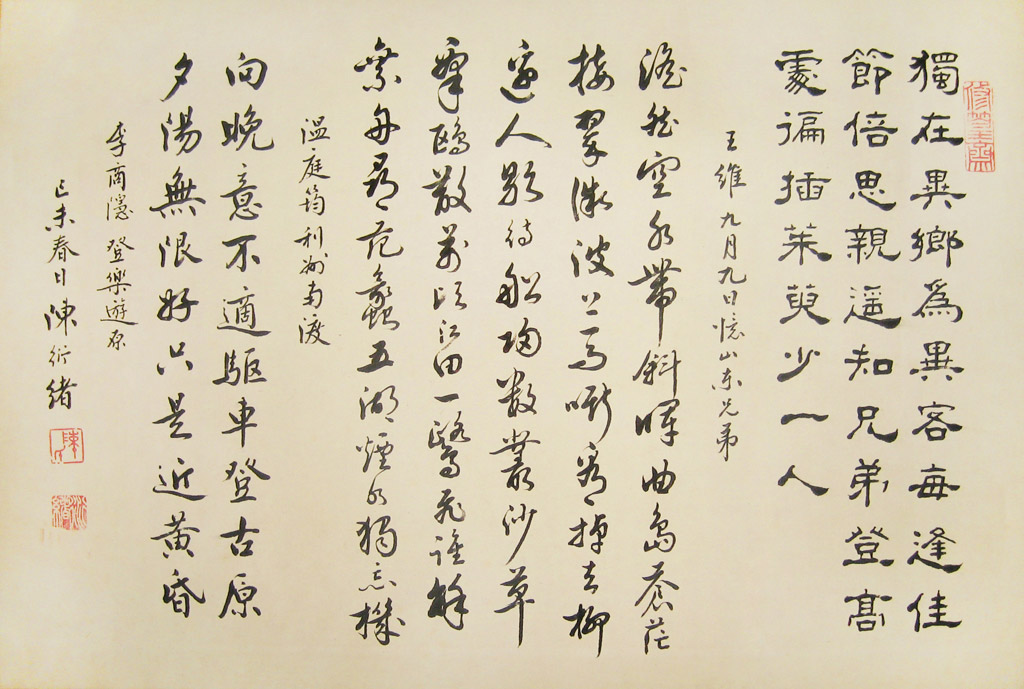 獨在異鄉為異客每逢佳
節倍思親遥知兄弟登高
處徧插茱萸少一人
王維 九月九日憶山東兄弟
澹然空水帶斜暉曲島蒼茫
接翠微波上馬嘶看棹去柳
邊人影待船歸數叢沙草
羣鷗散萬頃江田一鷺飛誰解
乘舟尋范蠡五湖煙水獨忘機
温庭筠利州南渡
向晚意不適驅車登古原
夕陽無限好只是近黃昏
李商隱 登樂遊原
己未春日 陳衍緒